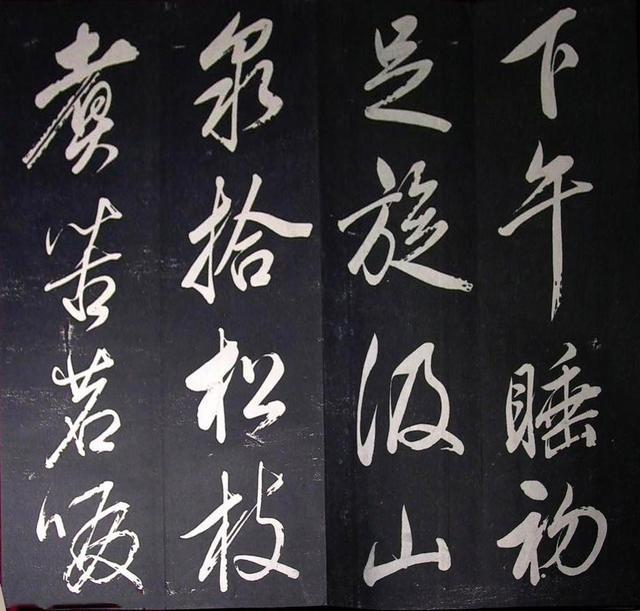 下午睡初
足旋汲山
泉拾松枝
煮苦茗啜